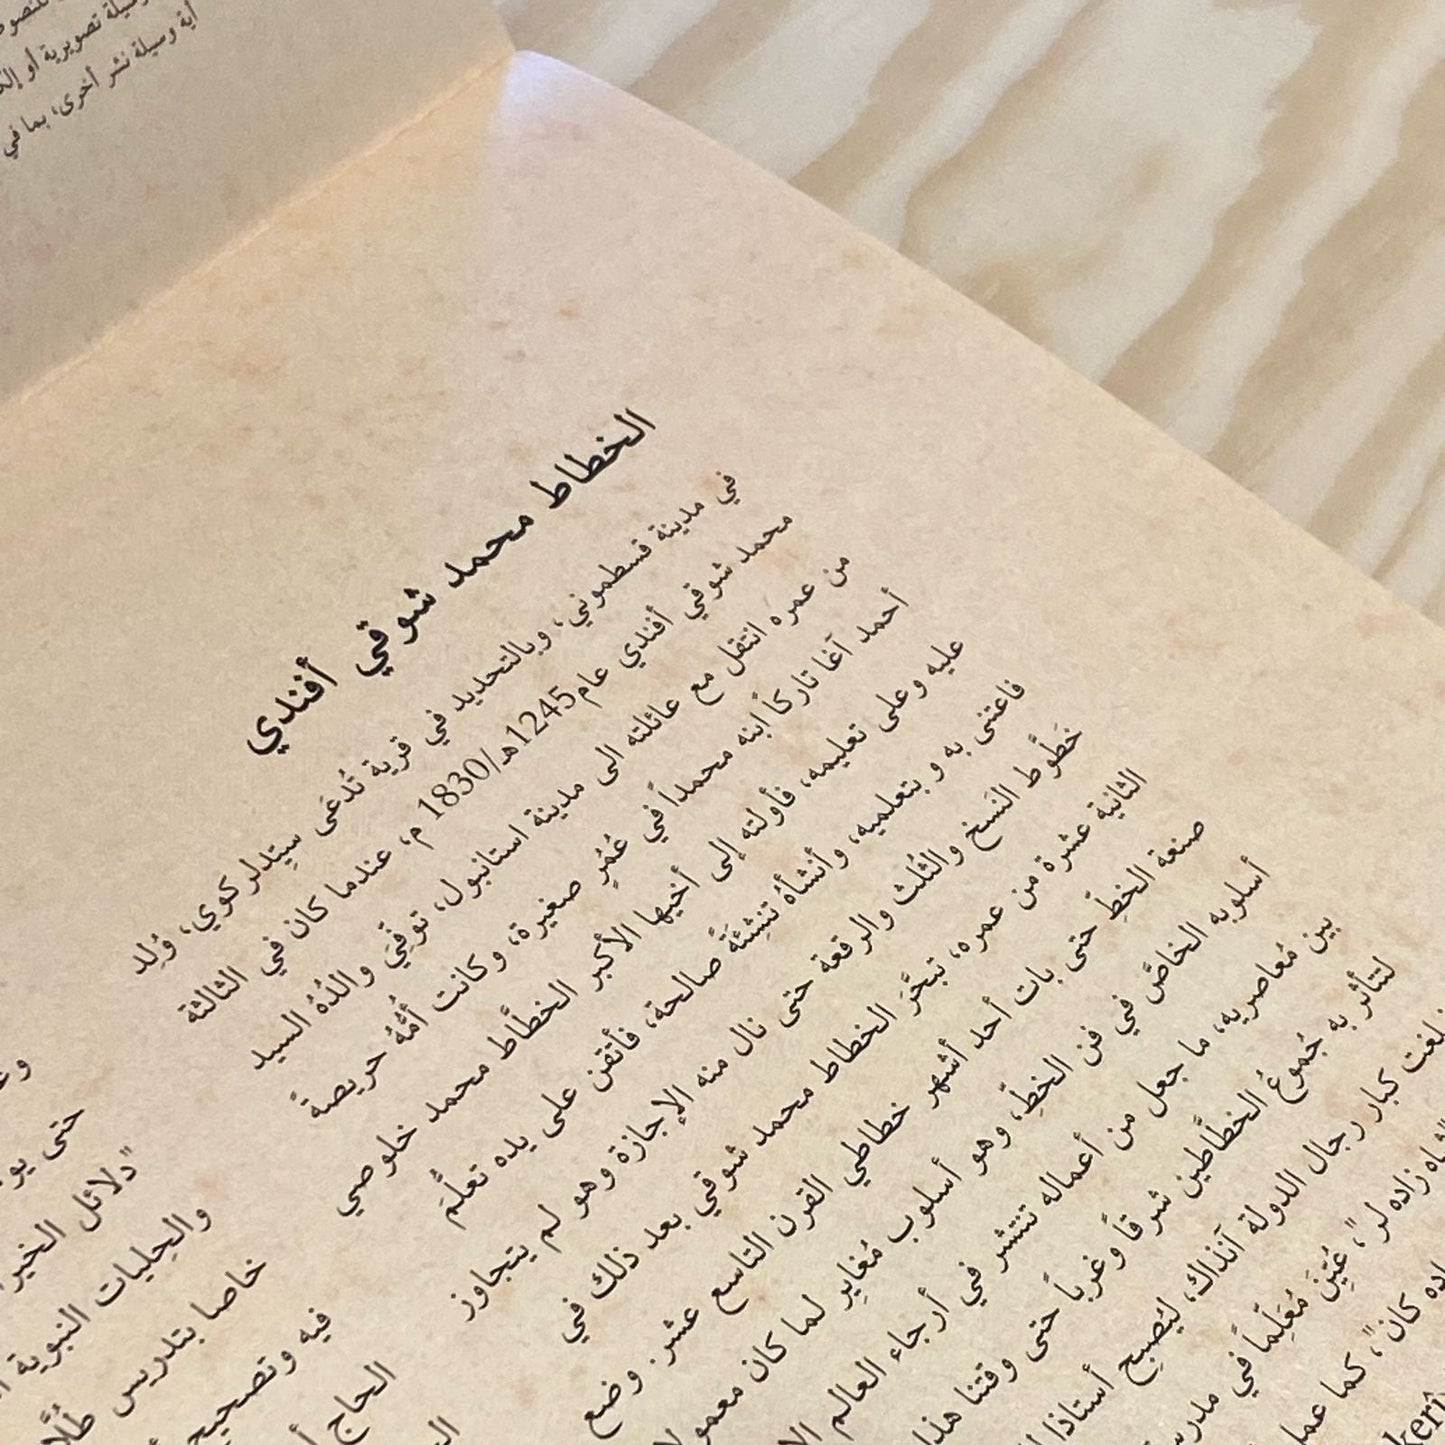 للنصوص
وسيلة تصويرية أو
أية وسيلة نشر أخرى، بما في
الخطاط محمد شوقي أفندي
في مدينة قسطموني، وبالتحديد في قرية تُدعَى سِيتِدلر كوي، وُلِد
محمد شوقي أفندي عام 1245هـ/1830 م، عندما كان في الثالثة
من عمره انتقل مع عائلته الى مدينة استانبول، توفِّيَ والدُهُ السيد
أحمد آغا تاركاً ابنه محمداً في عُمُرٍ صغيرة، وكانت أُمُّهُ حريصةً
عليه وعلى تعليمه، فأولته إلى أخيها الأكبر الخطَّاط محمد خلوصي
فاعتنى به و بتعلميه، وأنشأهُ تنشِئَةً صالحة، فأتقن على يده تعلُّمَ
خَطُّوط النَسخ والثُلث والرقعة حتى نال منه الإجازة وهو لم يتجاوز
الثانية عشرة من عمره، تبحَّرَ الخطاط محمد شوقي بعد ذلك في
صنعة الخطِّ حتى بات أحد أشهر خطاطي القرن التاسع عشر. وضع
أسلوبه الخاصَّ في فن الخطِّ، وهو أسلوب مُغايِرِ لما كان معمولا
بين مُعاصريه، ما جعل من أعماله تنتشر في أرجاء العالم
لتتأثر به جُموعُ الخطَّاطين شرقاً وغرباً حتى وقتنا هذا
كبار رجال الدولة آنذاك، ليُصبِح أستاذا
زاده لر"، عُيِّنَ مُعَلِّماً في
كان"، كما عمل
حتى
"دلائل الخير
والحِليات النبوية
خاصا بتدريس
فيه وتصحيح
الحاج